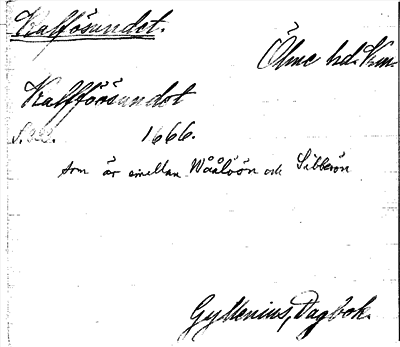 Kalfösundet.
Ölme hd. Km.
Kalfföösundet
1666.
som är emellan Wåålöön och Sibberön
Gyllenius, Dagbok.